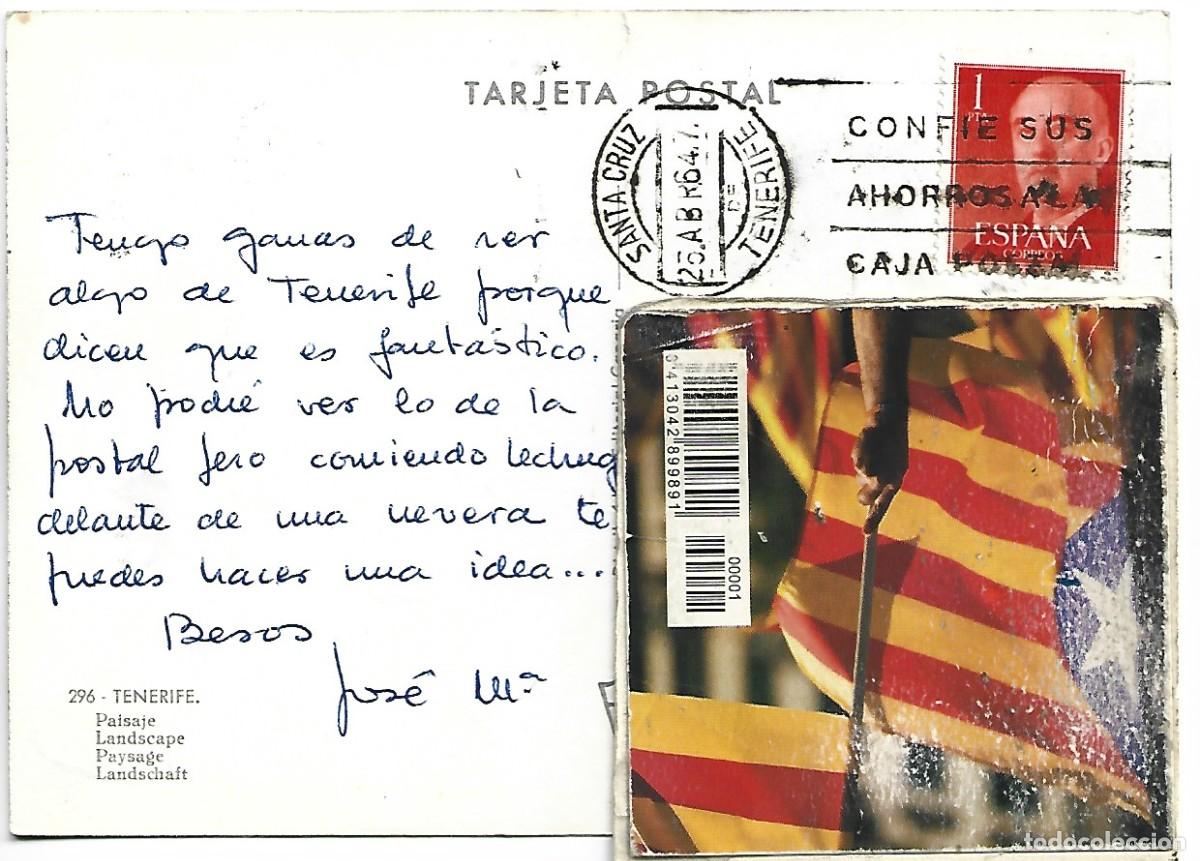 TARJETA POSTAL
SANTA CRUZ DE TENERIFE
CONFIE SUS
AHORROS A LA
CAJA
1
PTA
ESPAÑA
CORREOS
Tengo ganas de ver
algo de Tenerife porque
dicen que es fantástico.
No podré ver lo de la
postal pero comiendo lechug
delante de una nevera te
puedes hacer una idea...
Besos
José Mª
296 - TENERIFE.
Paisaje
Landscape
Paysage
Landschaft
00001
todocoleccion